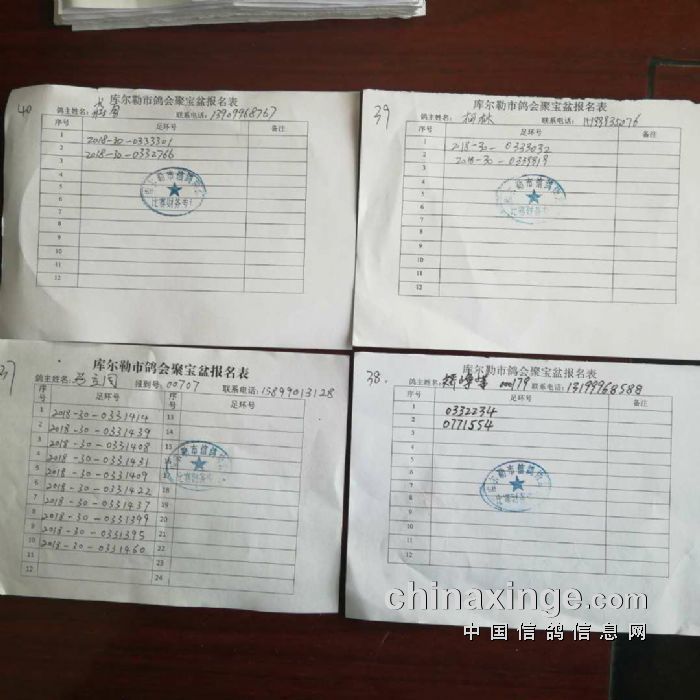 40
库尔勒市鸽会聚宝盆报名表
鸽主姓名: 联系电话: 13909968767
序号 足环号 备注
1 2018-30-0333301
2 2018-30-0332766
3
4
5
6
7
8
9
10
11
12
39
库尔勒市鸽会聚宝盆报名表
鸽主姓名: 联系电话:
序号 足环号 备注
1 2018-30-0339032
2 2018-30-0339819
3
4
5
6
7
8
9
10
11
12
37
库尔勒市鸽会聚宝盆报名表
鸽主姓名: 报到号: 00707 联系电话: 15899013128
序号 足环号 序号 足环号
1 2018-30-0331414 13
2 2018-30-0331439 14
3 2018-30-0331408 15
4 2018-30-0331431 16
5 2018-30-0331409 17
6 2018-30-0331422 18
7 2018-30-0331437 19
8 2018-30-0331399 20
9 2018-30-0331395 21
10 2018-30-0331460 22
11 23
12 24
38.
库尔勒市鸽会聚宝盆报名表
鸽主姓名: 00179 联系电话: 13199968588
序号 足环号 备注
1 0332234
2 0771554
3
4
5
6
7
8
9
10
11
12
chinaxinge.com
中国信鸽信息网